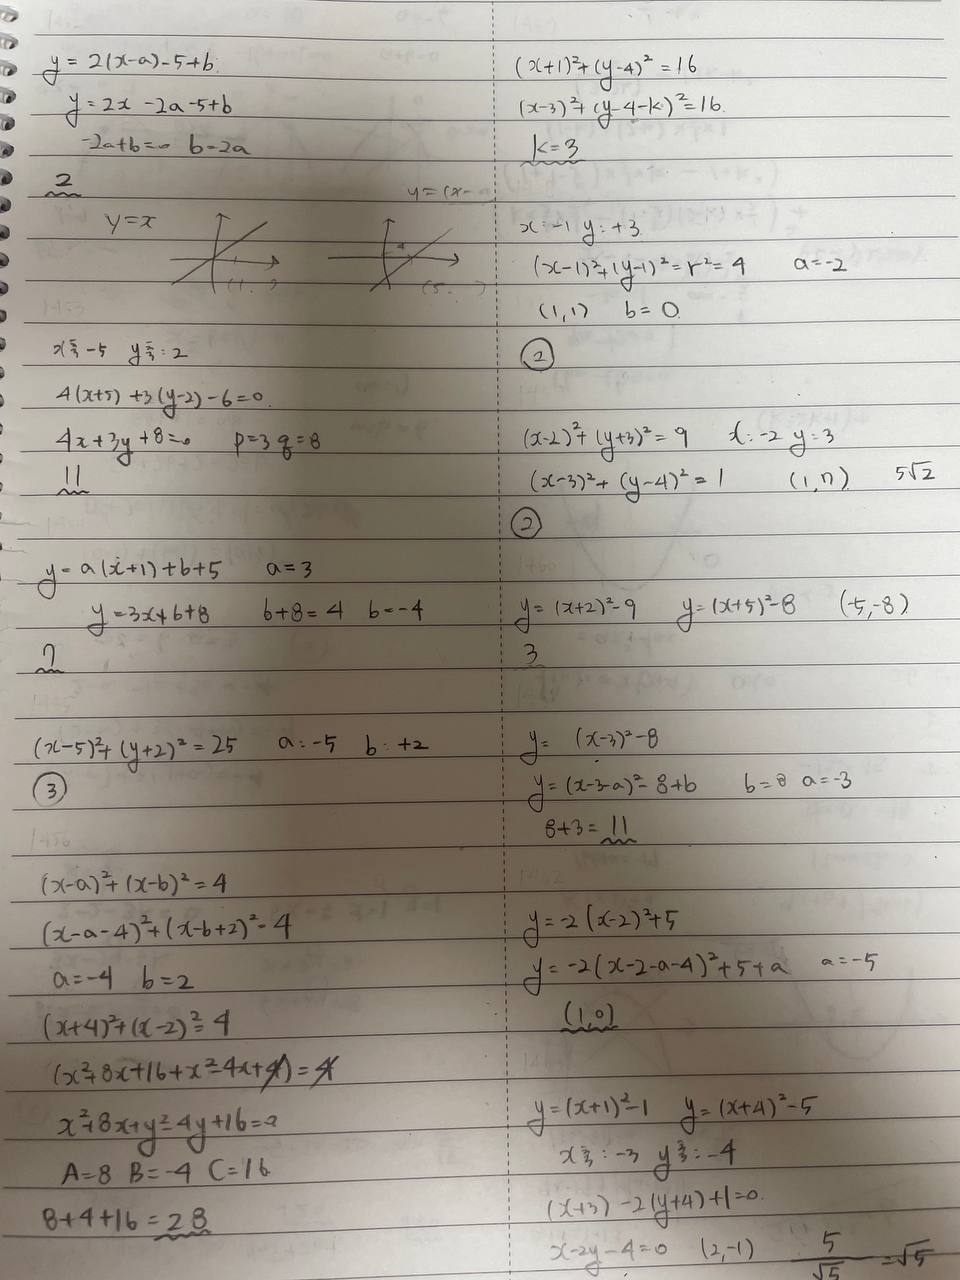 y = 2(x-a)-5+b
y = 2x -2a-5+b
-2a+b=0 b=2a
2
y=(x-
y=x
(1, )
(5, )
x축 -5 y축: 2
4(x+5) +3(y-2)-6=0
4x+3y+8=0 p=3 q=8
11
y= a(x+1)+b+5 a=3
y=3x+b+8 b+8=4 b=-4
7
(x-5)²+(y+2)²=25 a:-5 b: +2
③
(x-a)²+(x-b)²=4
(x-a-4)²+(x-b+2)²=4
a=-4 b=2
(x+4)²+(x-2)²=4
(x²+8x+16+x²-4x+4)=4
x²+8x+y²-4y+16=0
A=8 B=-4 C=16
8+4+16=28
(x+1)²+(y-4)²=16
(x-3)²+(y-4-k)²=16
k=3
x: -1 y: +3
(x-1)²+(y-1)²=r²=4 a=-2
(1,1) b=0
②
(x-2)²+(y+3)²=9 x:-2 y=3
(x-3)²+(y-4)²=1 (1,7) 5√2
②
y=(x+2)²-9 y=(x+5)²-8 (-5,-8)
3
y= (x-3)²-8
y=(x-3-a)²-8+b b=8 a=-3
8+3=11
y=-2(x-2)²+5
y=-2(x-2-a-4)²+5+a a=-5
(1,0)
y=(x+1)²-1 y=(x+4)²-5
x축:-3 y축:-4
(x+3)-2(y+4)+1=0
x-2y-4=0 (2,-1) 5/√5 =√5